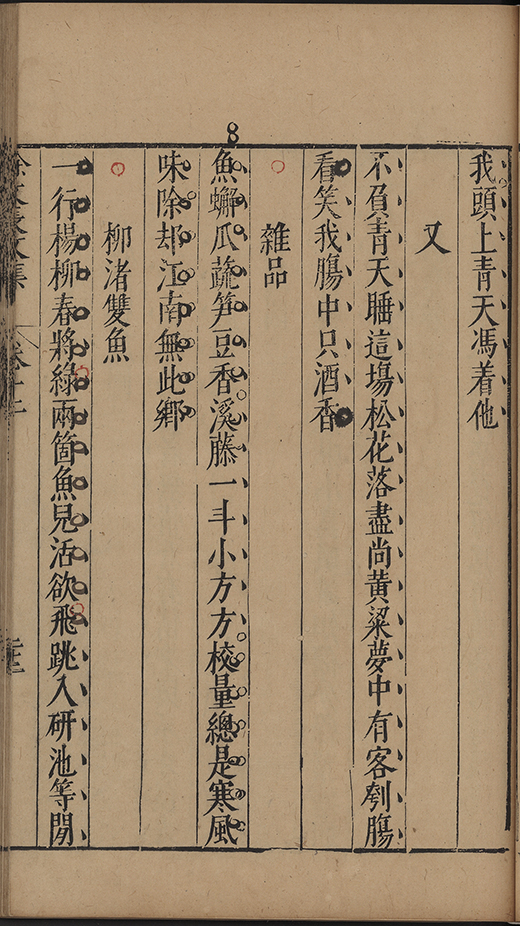 8
我頭上青天馮着他
又
不負青天睡這場松花落盡尚黃粱夢中有客刳腸
看笑我腸中只酒香
雜品
魚蠏瓜蔬笋豆香溪藤一斗小方方校量總是寒風
味除却江南無此鄉
柳渚雙魚
一行楊柳春將綠兩箇魚兒活欲飛跳入研池等閒
文集 卷十二